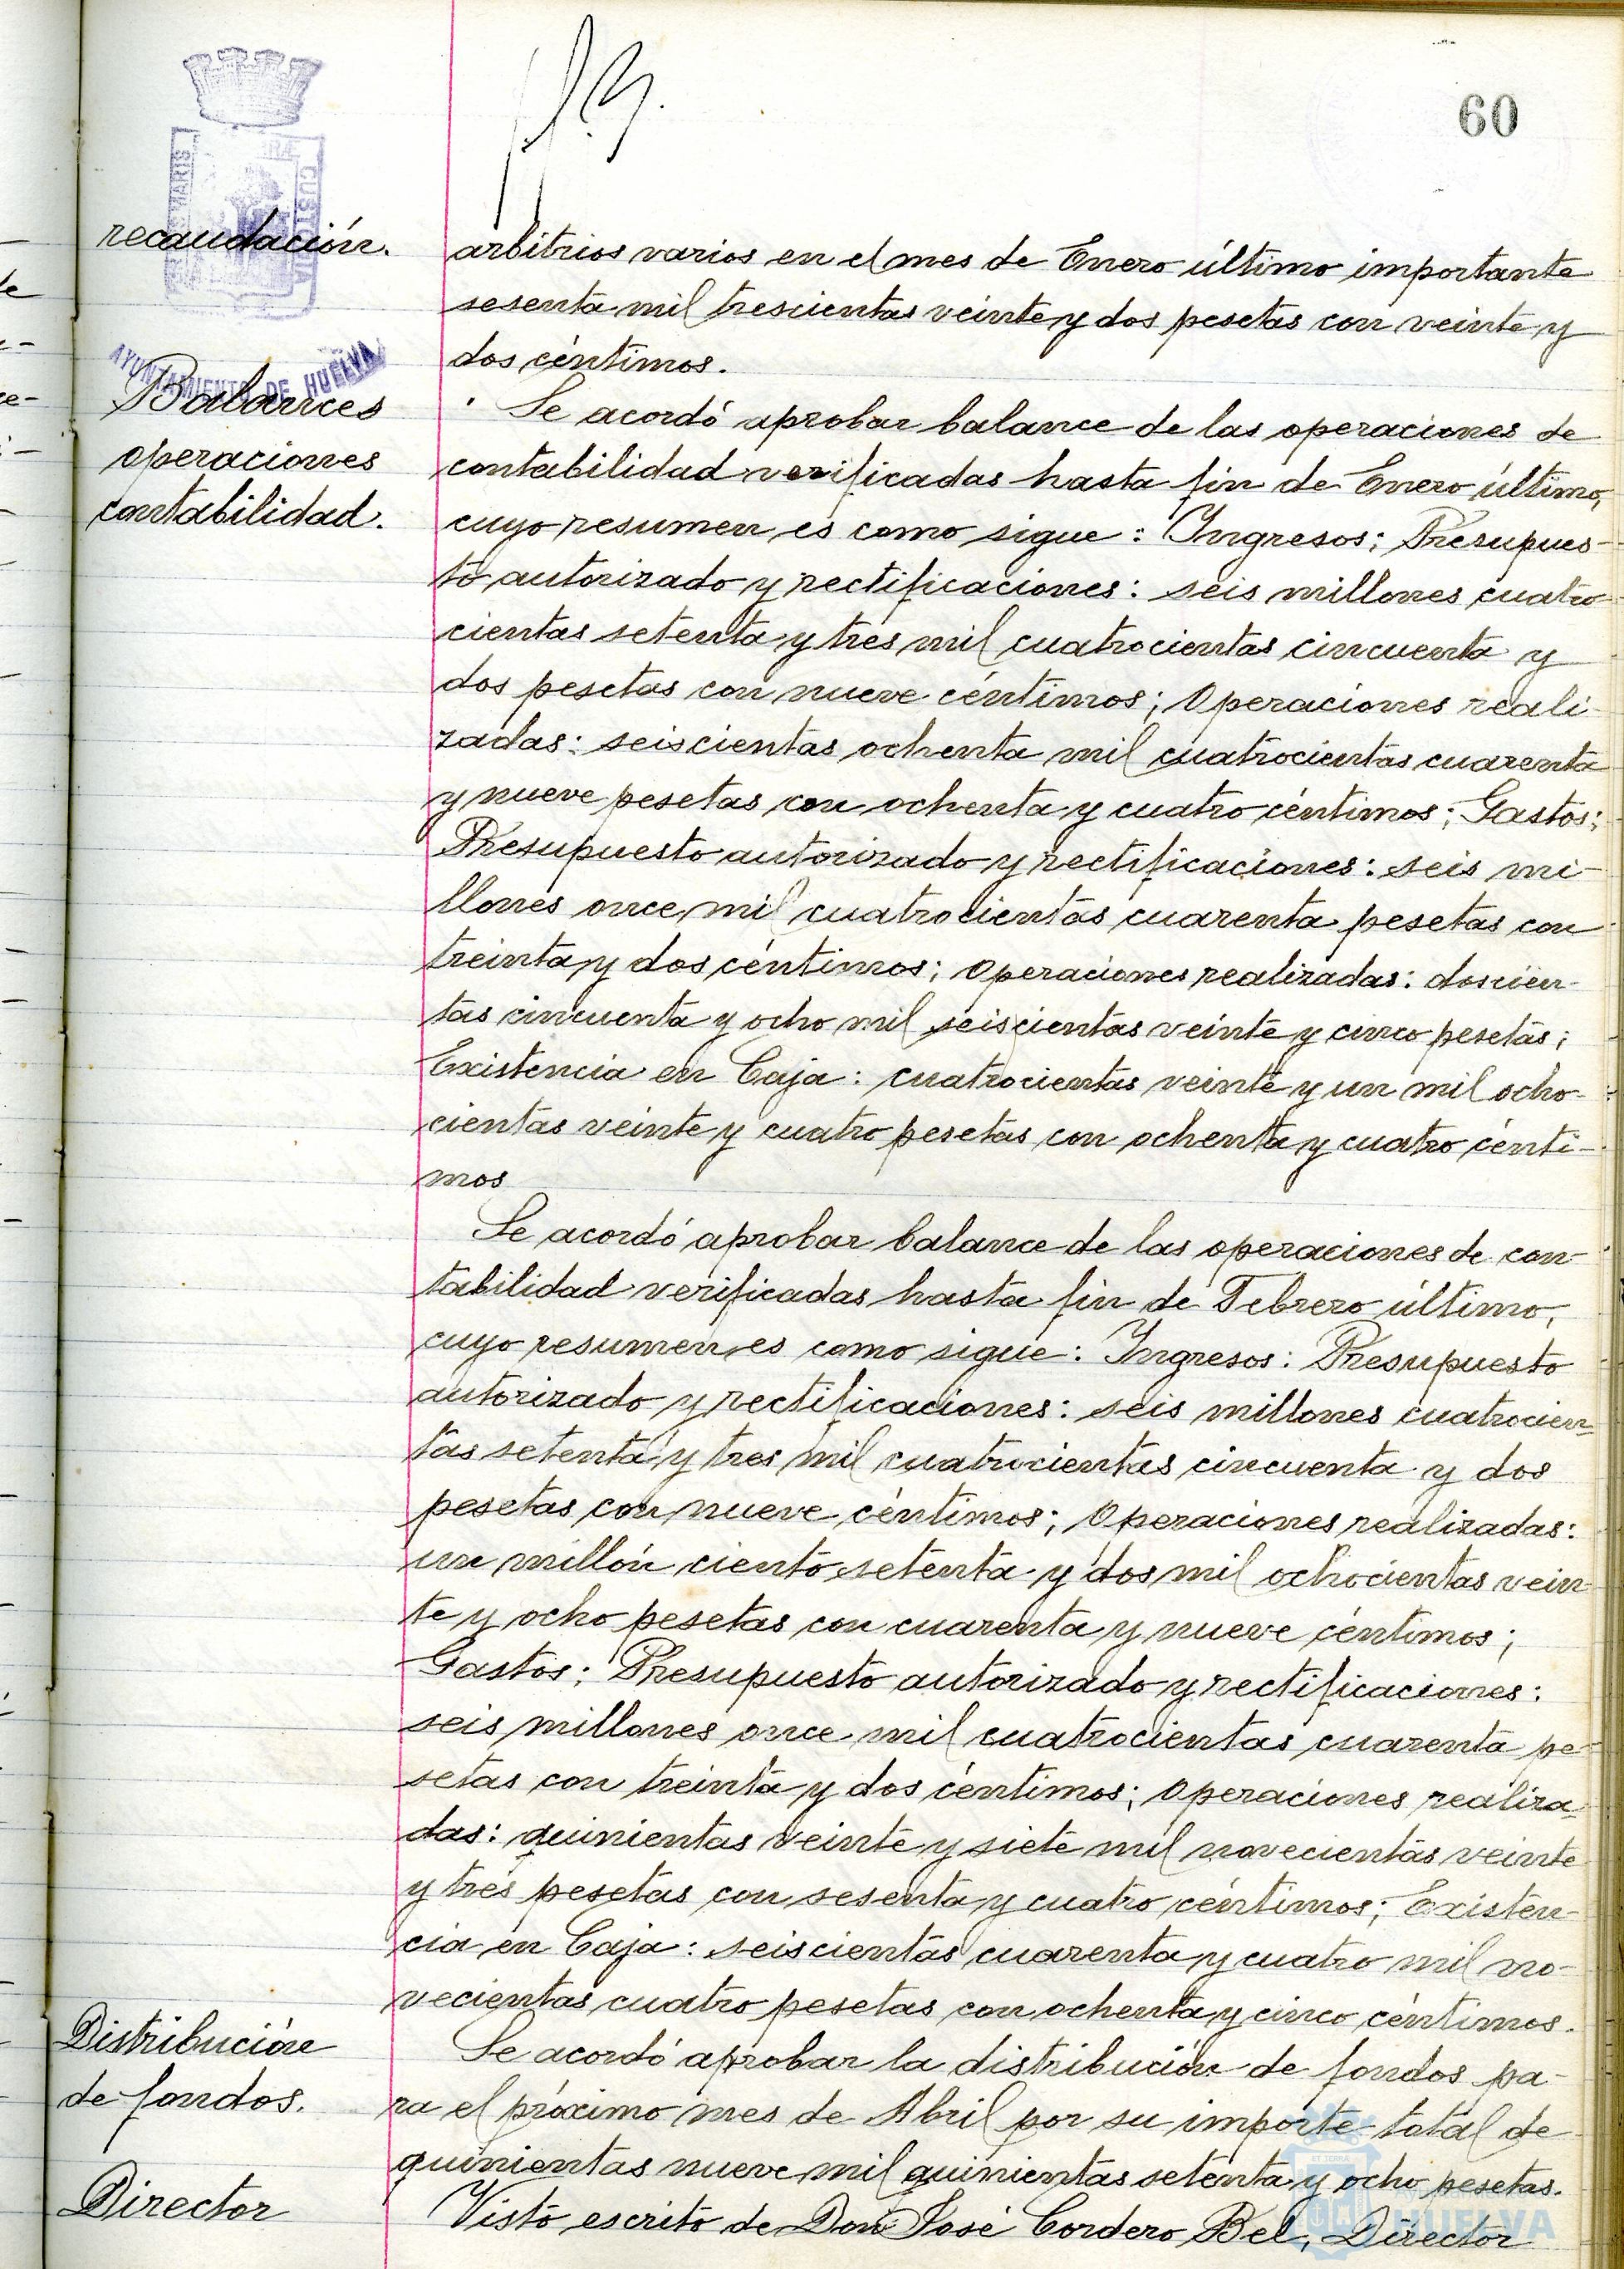 60
recaudación.
arbitrios varios en el mes de Enero último importante
sesenta mil trescientas veinte y dos pesetas con veinte y
dos céntimos.
AYUNTAMIENTO DE HUELVA
Balances
operaciones
contabilidad.
Se acordó aprobar balance de las operaciones de
contabilidad verificadas hasta fin de Enero último,
cuyo resumen es como sigue: Ingresos; Presupues-
to autorizado y rectificaciones: seis millones cuatro-
cientas setenta y tres mil cuatrocientas cincuenta y
dos pesetas con nueve céntimos; Operaciones reali-
zadas: seiscientas ochenta mil cuatrocientas cuarenta
y nueve pesetas con ochenta y cuatro céntimos; Gastos;
Presupuesto autorizado y rectificaciones: seis mi-
llones once mil cuatrocientas cuarenta pesetas con
treinta y dos céntimos; Operaciones realizadas: doscien-
tas cincuenta y ocho mil seiscientas veinte y cinco pesetas;
Existencia en Caja: cuatrocientas veinte y un mil ocho-
cientas veinte y cuatro pesetas con ochenta y cuatro cénti-
mos
Se acordó aprobar balance de las operaciones de con-
tabilidad verificadas hasta fin de Febrero último,
cuyo resumen es como sigue: Ingresos: Presupuesto
autorizado y rectificaciones: seis millones cuatrocien-
tas setenta y tres mil cuatrocientas cincuenta y dos
pesetas con nueve céntimos; Operaciones realizadas:
un millón ciento setenta y dos mil ochocientas vein-
te y ocho pesetas con cuarenta y nueve céntimos;
Gastos; Presupuesto autorizado y rectificaciones:
seis millones once mil cuatrocientas cuarenta pe-
setas con treinta y dos céntimos; Operaciones realiza-
das: quinientas veinte y siete mil novecientas veinte
y tres pesetas con sesenta y cuatro céntimos; Existen-
cia en Caja: seiscientas cuarenta y cuatro mil no-
vecientas cuatro pesetas con ochenta y cinco céntimos.
Distribución
de fondos.
Se acordó aprobar la distribución de fondos pa-
ra el próximo mes de Abril por su importe total de
quinientas nueve mil quinientas setenta y ocho pesetas.
Director
Visto escrito de Don José Cordero Bel, Director
HUELVA